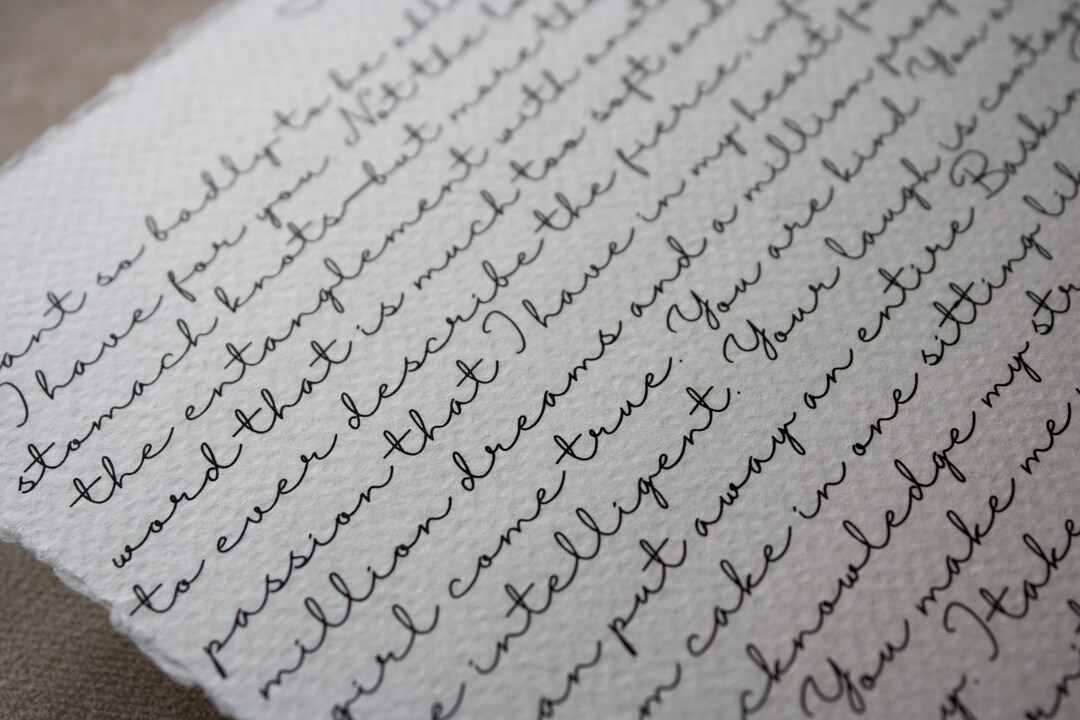 so badly to be
I have for you. Not the
stomach knots—but more
the entanglement with
word that is much too soft
to ever describe the fierce,
passion that I have in my heart
million dreams and a million
girl come true. You are kind. You
intelligent. Your laugh is
put away an entire Baskin
cake in one sitting
my
You make me
I take